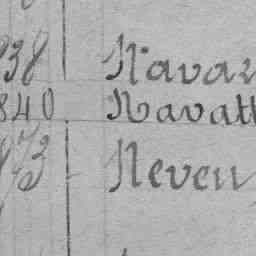 838 Navar
840 Navatt
873 Neveu